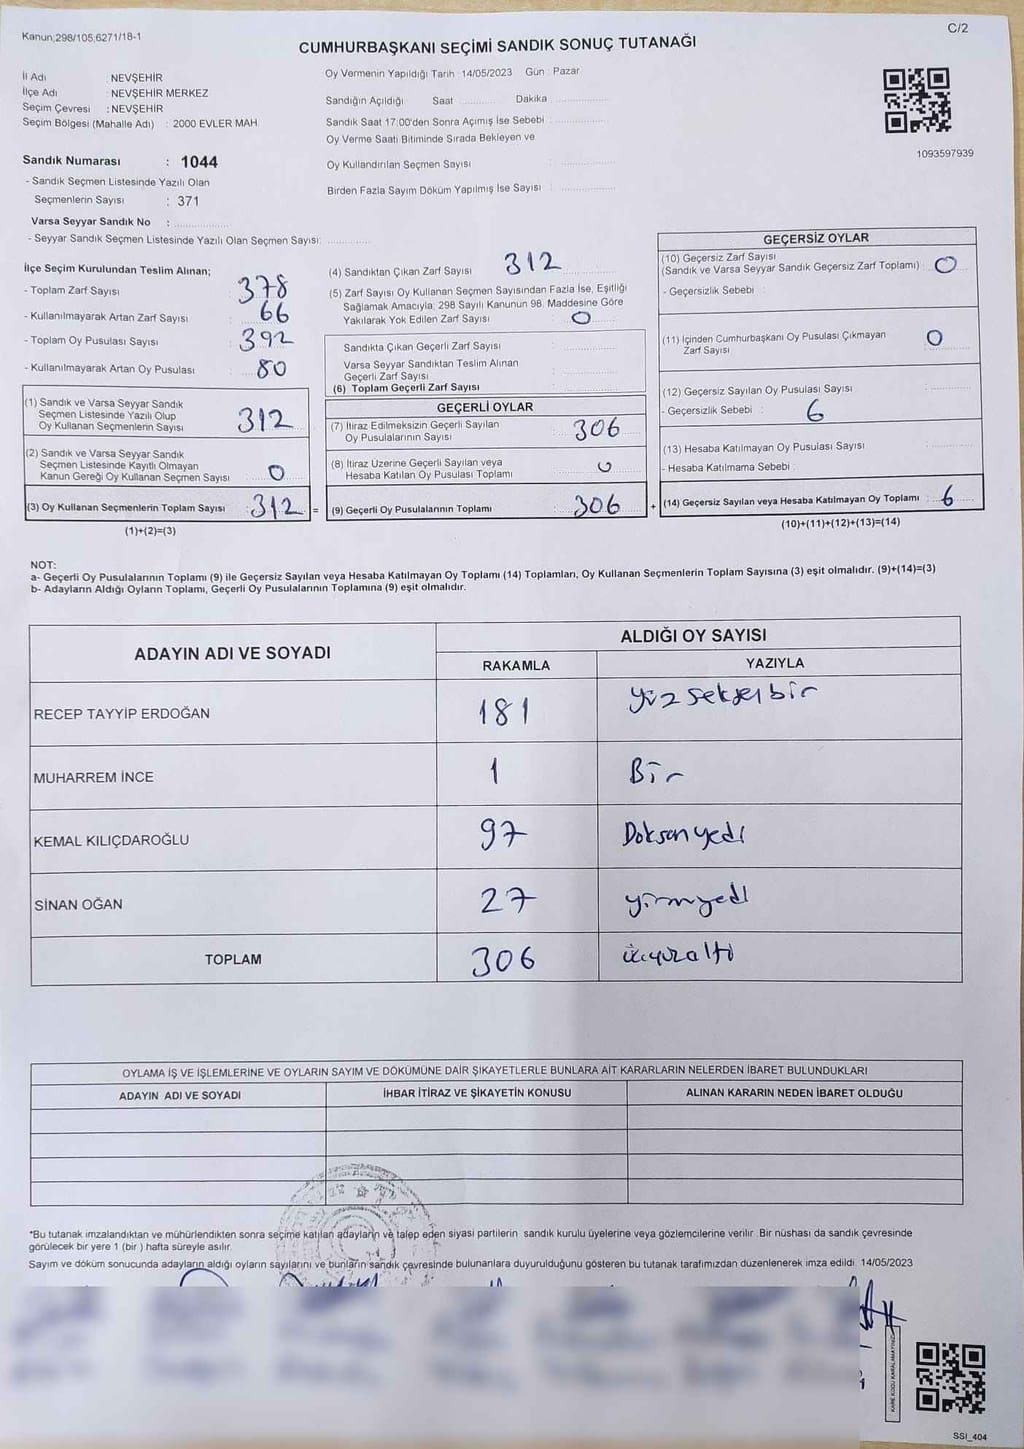 Kanun;298/105;6271/18-1
C/2
CUMHURBAŞKANI SEÇİMİ SANDIK SONUÇ TUTANAĞI
İl Adı : NEVŞEHİR
İlçe Adı : NEVŞEHİR MERKEZ
Seçim Çevresi : NEVŞEHİR
Seçim Bölgesi (Mahalle Adı) : 2000 EVLER MAH
Sandık Numarası : 1044
- Sandık Seçmen Listesinde Yazılı Olan
Seçmenlerin Sayısı : 371
Varsa Seyyar Sandık No :
- Seyyar Sandık Seçmen Listesinde Yazılı Olan Seçmen Sayısı:
Oy Vermenin Yapıldığı Tarih : 14/05/2023 Gün : Pazar
Sandığın Açıldığı Saat Dakika
Sandık Saat 17:00'den Sonra Açımış İse Sebebi :
Oy Verme Saati Bitiminde Sırada Bekleyen ve
Oy Kullandırılan Seçmen Sayısı :
Birden Fazla Sayım Döküm Yapılmış İse Sayısı :
1093597939
İlçe Seçim Kurulundan Teslim Alınan;
- Toplam Zarf Sayısı : 378
- Kullanılmayarak Artan Zarf Sayısı : 66
- Toplam Oy Pusulası Sayısı : 392
- Kullanılmayarak Artan Oy Pusulası : 80
(1) Sandık ve Varsa Seyyar Sandık
Seçmen Listesinde Yazılı Olup
Oy Kullanan Seçmenlerin Sayısı : 312
(2) Sandık ve Varsa Seyyar Sandık
Seçmen Listesinde Kayıtlı Olmayan
Kanun Gereği Oy Kullanan Seçmen Sayısı : 0
(3) Oy Kullanan Seçmenlerin Toplam Sayısı : 312 =
(1)+(2)=(3)
(4) Sandıktan Çıkan Zarf Sayısı : 312
(5) Zarf Sayısı Oy Kullanan Seçmen Sayısından Fazla İse, Eşitliği
Sağlamak Amacıyla; 298 Sayılı Kanunun 98. Maddesine Göre
Yakılarak Yok Edilen Zarf Sayısı : 0
Sandıkta Çıkan Geçerli Zarf Sayısı :
Varsa Seyyar Sandıktan Teslim Alınan
Geçerli Zarf Sayısı :
(6) Toplam Geçerli Zarf Sayısı :
GEÇERLİ OYLAR
(7) İtiraz Edilmeksizin Geçerli Sayılan
Oy Pusulalarının Sayısı : 306
(8) İtiraz Üzerine Geçerli Sayılan veya
Hesaba Katılan Oy Pusulası Toplamı : 0
(9) Geçerli Oy Pusulalarının Toplamı : 306 +
GEÇERSİZ OYLAR
(10) Geçersiz Zarf Sayısı
(Sandık ve Varsa Seyyar Sandık Geçersiz Zarf Toplamı) : 0
- Geçersizlik Sebebi :
(11) İçinden Cumhurbaşkanı Oy Pusulası Çıkmayan
Zarf Sayısı : 0
(12) Geçersiz Sayılan Oy Pusulası Sayısı :
- Geçersizlik Sebebi : 6
(13) Hesaba Katılmayan Oy Pusulası Sayısı :
- Hesaba Katılmama Sebebi :
(14) Geçersiz Sayılan veya Hesaba Katılmayan Oy Toplamı : 6
(10)+(11)+(12)+(13)=(14)
NOT:
a- Geçerli Oy Pusulalarının Toplamı (9) ile Geçersiz Sayılan veya Hesaba Katılmayan Oy Toplamı (14) Toplamları, Oy Kullanan Seçmenlerin Toplam Sayısına (3) eşit olmalıdır. (9)+(14)=(3)
b- Adayların Aldığı Oyların Toplamı, Geçerli Oy Pusulalarının Toplamına (9) eşit olmalıdır.
ADAYIN ADI VE SOYADI ALDIĞI OY SAYISI
RAKAMLA YAZIYLA
RECEP TAYYİP ERDOĞAN 181 yüzseksenbir
MUHARREM İNCE 1 Bir
KEMAL KILIÇDAROĞLU 97 Doksanyedi
SİNAN OĞAN 27 yirmiyedi
TOPLAM 306 üçyüzaltı
OYLAMA İŞ VE İŞLEMLERİNE VE OYLARIN SAYIM VE DÖKÜMÜNE DAİR ŞİKAYETLERLE BUNLARA AİT KARARLARIN NELERDEN İBARET BULUNDUKLARI
ADAYIN ADI VE SOYADI İHBAR İTİRAZ VE ŞİKAYETİN KONUSU ALINAN KARARIN NEDEN İBARET OLDUĞU
*Bu tutanak imzalandıktan ve mühürlendikten sonra seçime katılan adayların ve talep eden siyasi partilerin sandık kurulu üyelerine veya gözlemcilerine verilir. Bir nüshası da sandık çevresinde
görülecek bir yere 1 (bir ) hafta süreyle asılır.
Sayım ve döküm sonucunda adayların aldığı oyların sayılarını ve bunların sandık çevresinde bulunanlara duyurulduğunu gösteren bu tutanak tarafımızdan düzenlenerek imza edildi. 14/05/2023
KARE KODU KARALAMAYINIZ
SSI_404